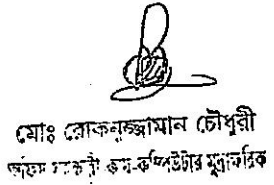 মোঃ রোকনুজ্জামান চৌধুরী
অফিস সহকারী কাম-কম্পিউটার মুদ্রাক্ষরিক